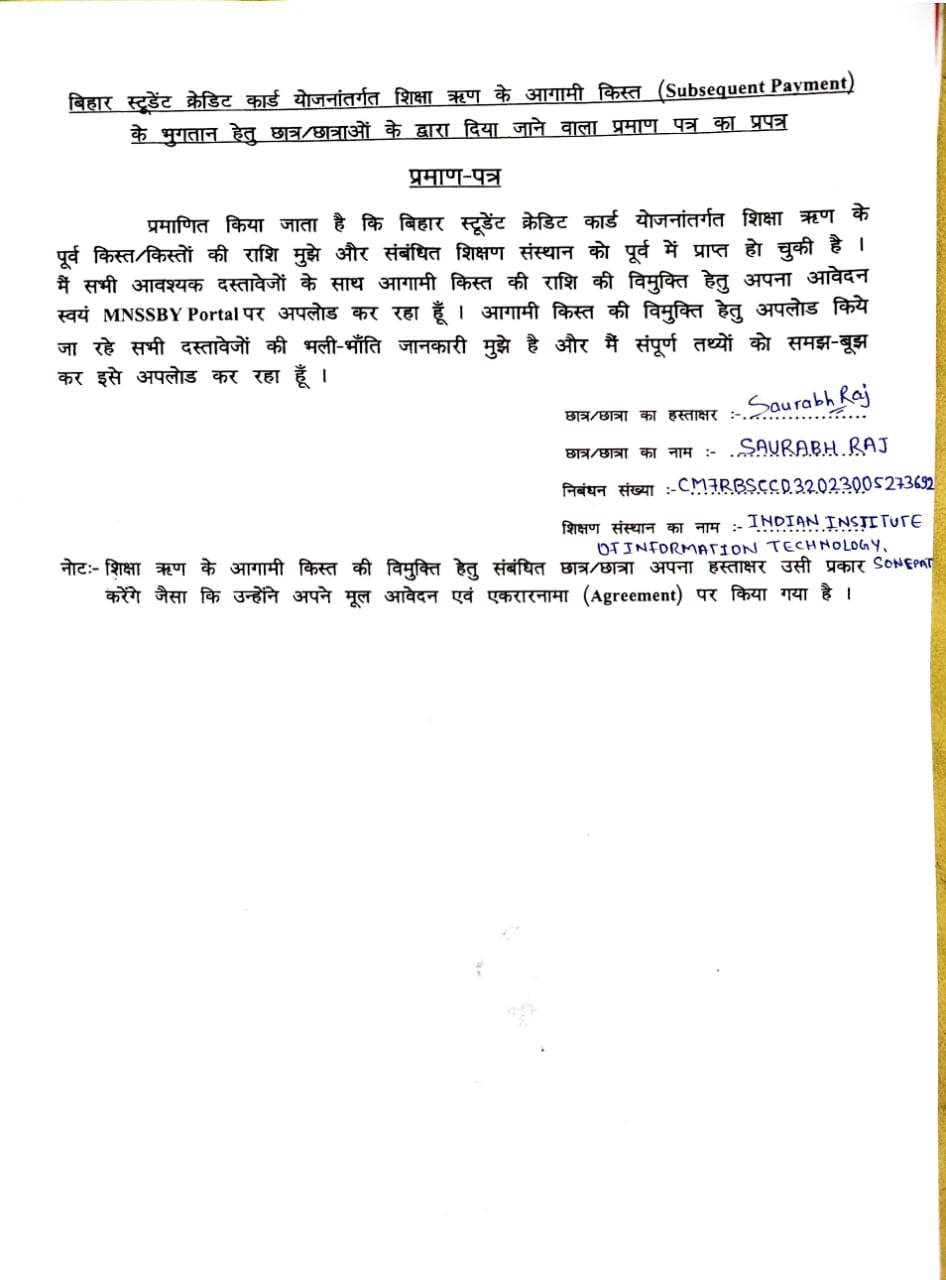 बिहार स्टूडेंट क्रेडिट कार्ड योजनांतर्गत शिक्षा ऋण के आगामी किस्त (Subsequent Payment)
के भुगतान हेतु छात्र/छात्राओं के द्वारा दिया जाने वाला प्रमाण पत्र का प्रपत्र
प्रमाण-पत्र
प्रमाणित किया जाता है कि बिहार स्टूडेंट क्रेडिट कार्ड योजनांतर्गत शिक्षा ऋण के
पूर्व किस्त/किस्तों की राशि मुझे और संबंधित शिक्षण संस्थान को पूर्व में प्राप्त हो चुकी है ।
मैं सभी आवश्यक दस्तावेजों के साथ आगामी किस्त की राशि की विमुक्ति हेतु अपना आवेदन
स्वयं MNSSBY Portal पर अपलोड कर रहा हूँ । आगामी किस्त की विमुक्ति हेतु अपलोड किये
जा रहे सभी दस्तावेजों की भली-भाँति जानकारी मुझे है और मैं संपूर्ण तथ्यों को समझ-बूझ
कर इसे अपलोड कर रहा हूँ ।
छात्र/छात्रा का हस्ताक्षर :- Saurabh Raj
छात्र/छात्रा का नाम :- SAURABH RAJ
निबंधन संख्या :- CM7RBSCCD32023005273692
शिक्षण संस्थान का नाम :- INDIAN INSTITUTE
OF INFORMATION TECHNOLOGY,
SONEPAT
नोटः- शिक्षा ऋण के आगामी किस्त की विमुक्ति हेतु संबंधित छात्र/छात्रा अपना हस्ताक्षर उसी प्रकार
करेंगे जैसा कि उन्होंने अपने मूल आवेदन एवं एकरारनामा (Agreement) पर किया गया है ।